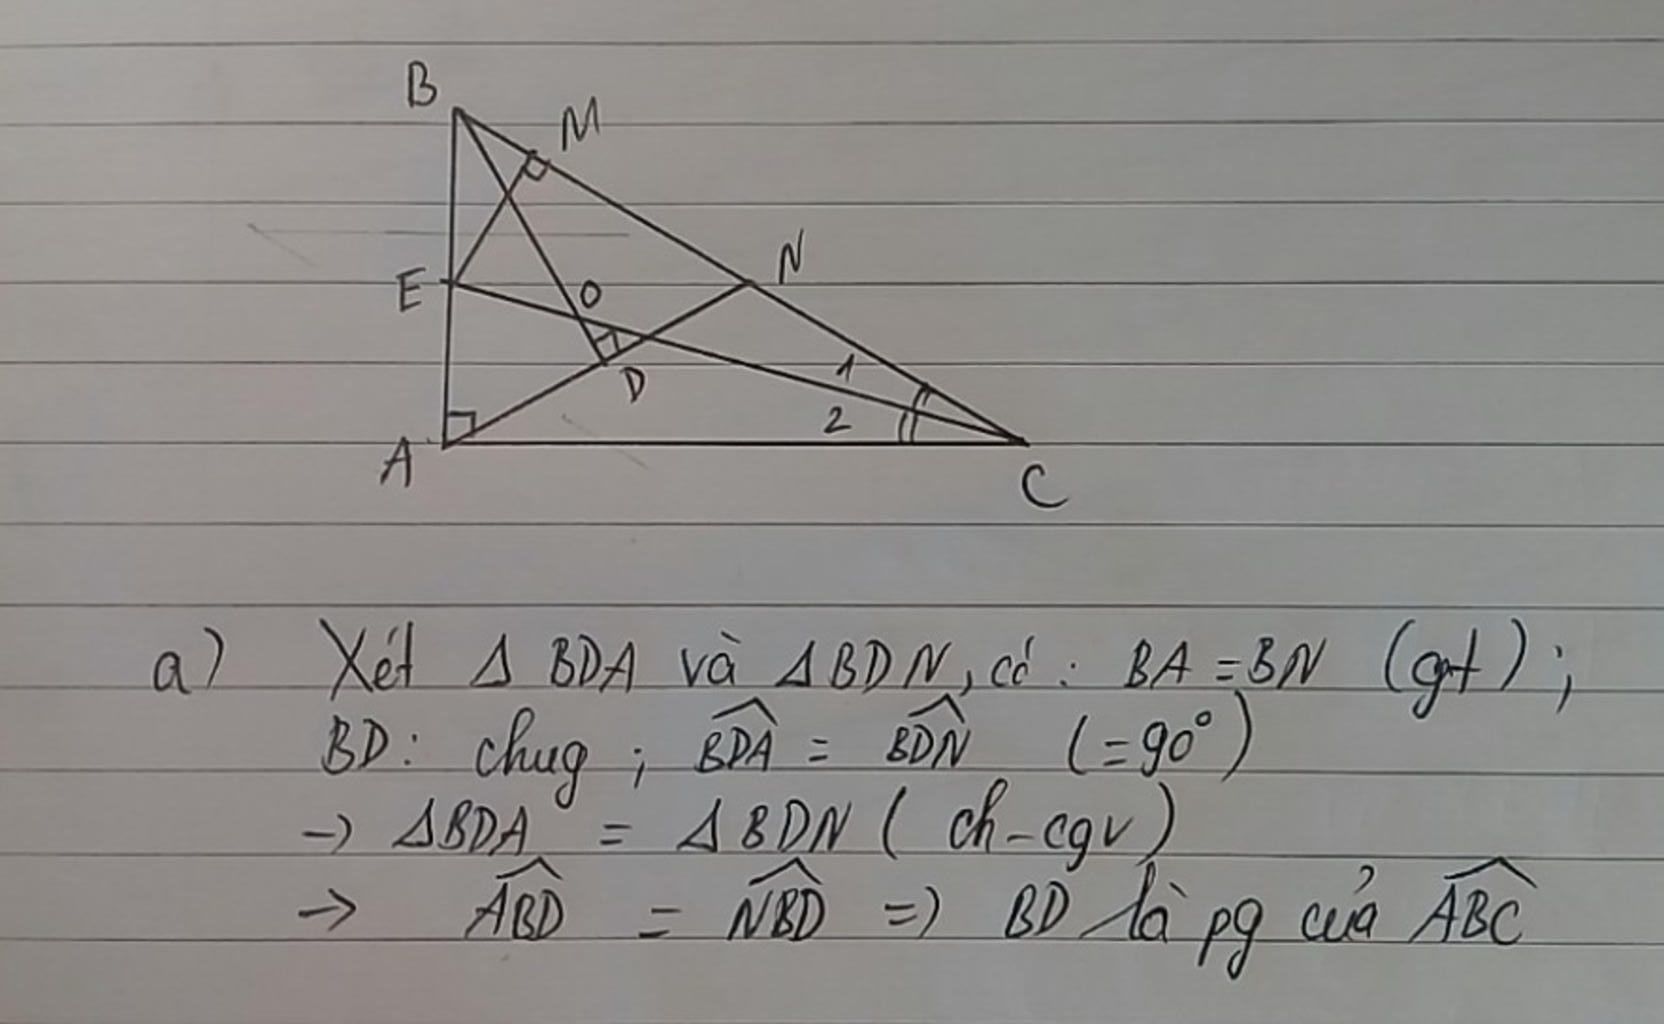 B
M
N
E
O
1
D
2
A
C
a) Xét Δ BDA và ΔBDN, có : BA = BN (gt) ;
BD: chug ; \widehat{BDA} = \widehat{BDN} (=90°)
-> ΔBDA = ΔBDN ( ch-cgv)
-> \widehat{ABD} = \widehat{NBD} => BD là pg của \widehat{ABC}